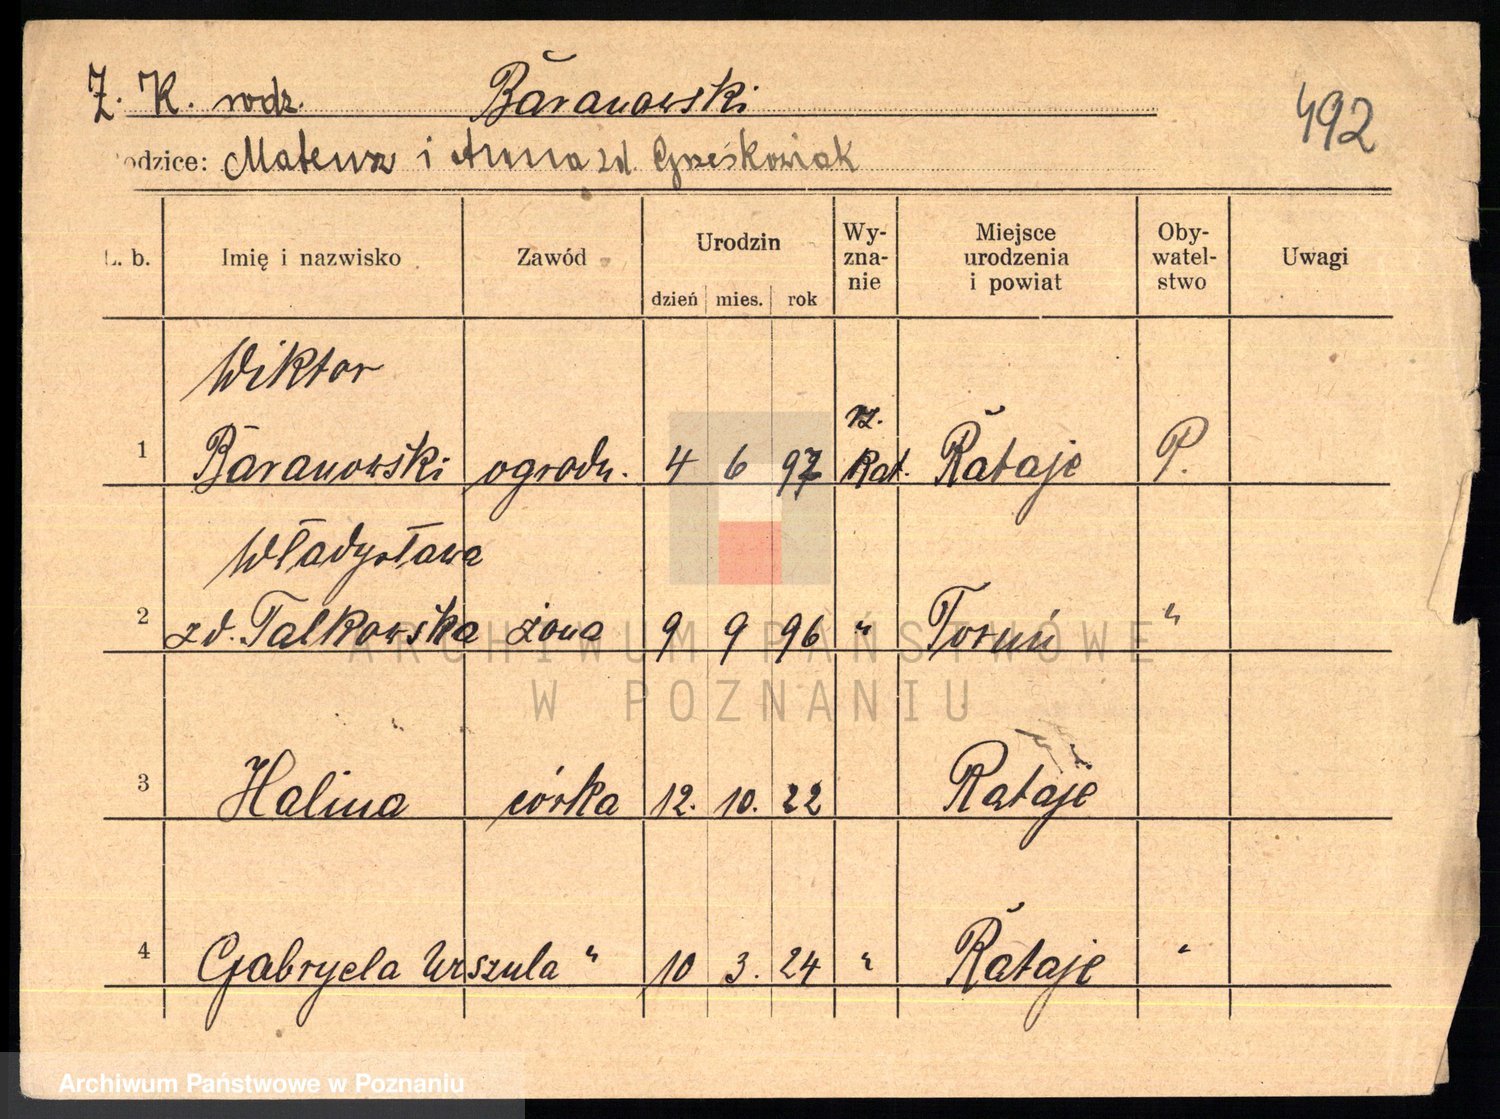 Ż. K. rodz. Baranowski
492
odzice: Mateusz i Anna zd. Grześkowiak
L. b. Imię i nazwisko Zawód Urodzin dzień mies. rok Wy-zna-nie Miejsce urodzenia i powiat Oby-watel-stwo Uwagi
Wiktor
1 Baranowski ogrodn. 4 6 97 rz. kat. Rataje P.
Władysława
2 zd. Talkowska żona 9 9 96 " Toruń "
3 Halina córka 12. 10. 22 Rataje
4 Gabryela Urszula " 10 3. 24 " Rataje "
ARCHIWUM PAŃSTWOWE
W POZNANIU
Archiwum Państwowe w Poznaniu